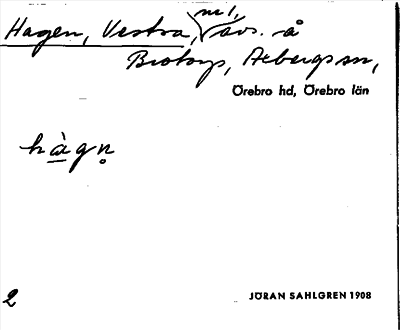 Hagen, Vestra, nr 1, avs. å
Brotorp, Axbergs sn,
Örebro hd, Örebro län
hàgn̥
2
JÖRAN SAHLGREN 1908